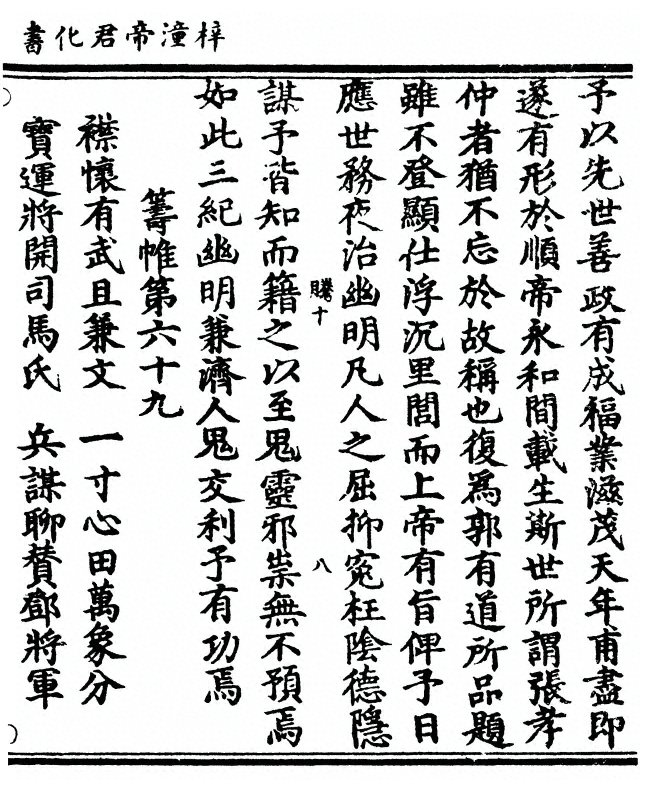 梓潼帝君化書
予以先世善政有成福業滋茂天年甫盡即
遂有形於順帝永和間載生斯世所謂張孝
仲者猶不忘於故稱也復為郭有道所品題
雖不登顯仕浮沉里閭而上帝有旨俾予日
應世務夜治幽明凡人之屈抑寃枉陰德隱
騰十　八
謀予皆知而籍之以至鬼靈邪祟無不預焉
如此三紀幽明兼濟人鬼交利予有功焉
籌帷第六十九
襟懷有武且兼文　一寸心田萬象分
寶運將開司馬氏　兵謀聊賛鄧將軍